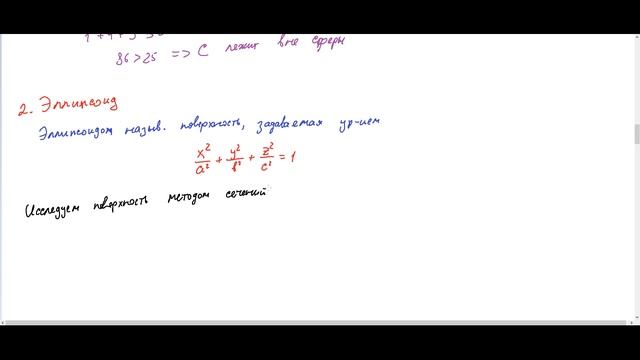 86 > 25 => C лежит вне сферы
2. Эллипсоид
Эллипсоидом назыв. поверхность, задаваемая ур-ием
x²/a² + y²/b² + z²/c² = 1
Исследуем поверхность методом сечений